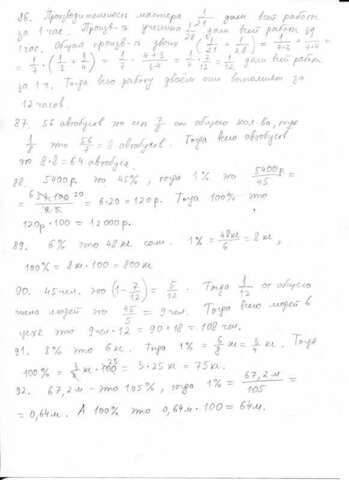 86. Производительность мастера 1/21 доли всей работы
за 1 час. Произв-ть ученика 1/28 доли всей работы за
1 час. Общая произв-ть двоих (1/21 + 1/28) =
= 1/7 · (1/3 + 1/4) = 1/7 · (4+3)/(3·4) = 1/7 · 7/12 = 1/12 доли всей работы
за 1 ч. Тогда всю работу вдвоём они выполнят за
12 часов.
87. 56 автобусов это есть 7/8 от общего кол-ва, тогда
1/8 это 56/7 = 8 автобусов. Тогда всего автобусов
это 8·8 = 64 автобуса.
88. 5400р это 45%, тогда 1% это 5400р/45 =
= 6·20 = 120р. Тогда 100% это
120р·100 = 12000р.
89. 6% это 48кг сол. 1% = 48кг/6 = 8кг,
100% = 8кг·100 = 800кг
90. 45 чел. это (1 - 7/12) = 5/12. Тогда 1/12 от общего
числа людей это 45/5 = 9 чел. Тогда всего людей в
цехе это 9чел·12 = 90+18 = 108 чел.
91. 8% это 6кг. Тогда 1% = 6/8 кг = 3/4 кг. Тогда
100% = 3/4 кг · 100 = 3·25кг = 75кг.
92. 67,2м - это 105%, тогда 1% = 67,2м/105 =
= 0,64м. А 100% это 0,64м·100 = 64м.